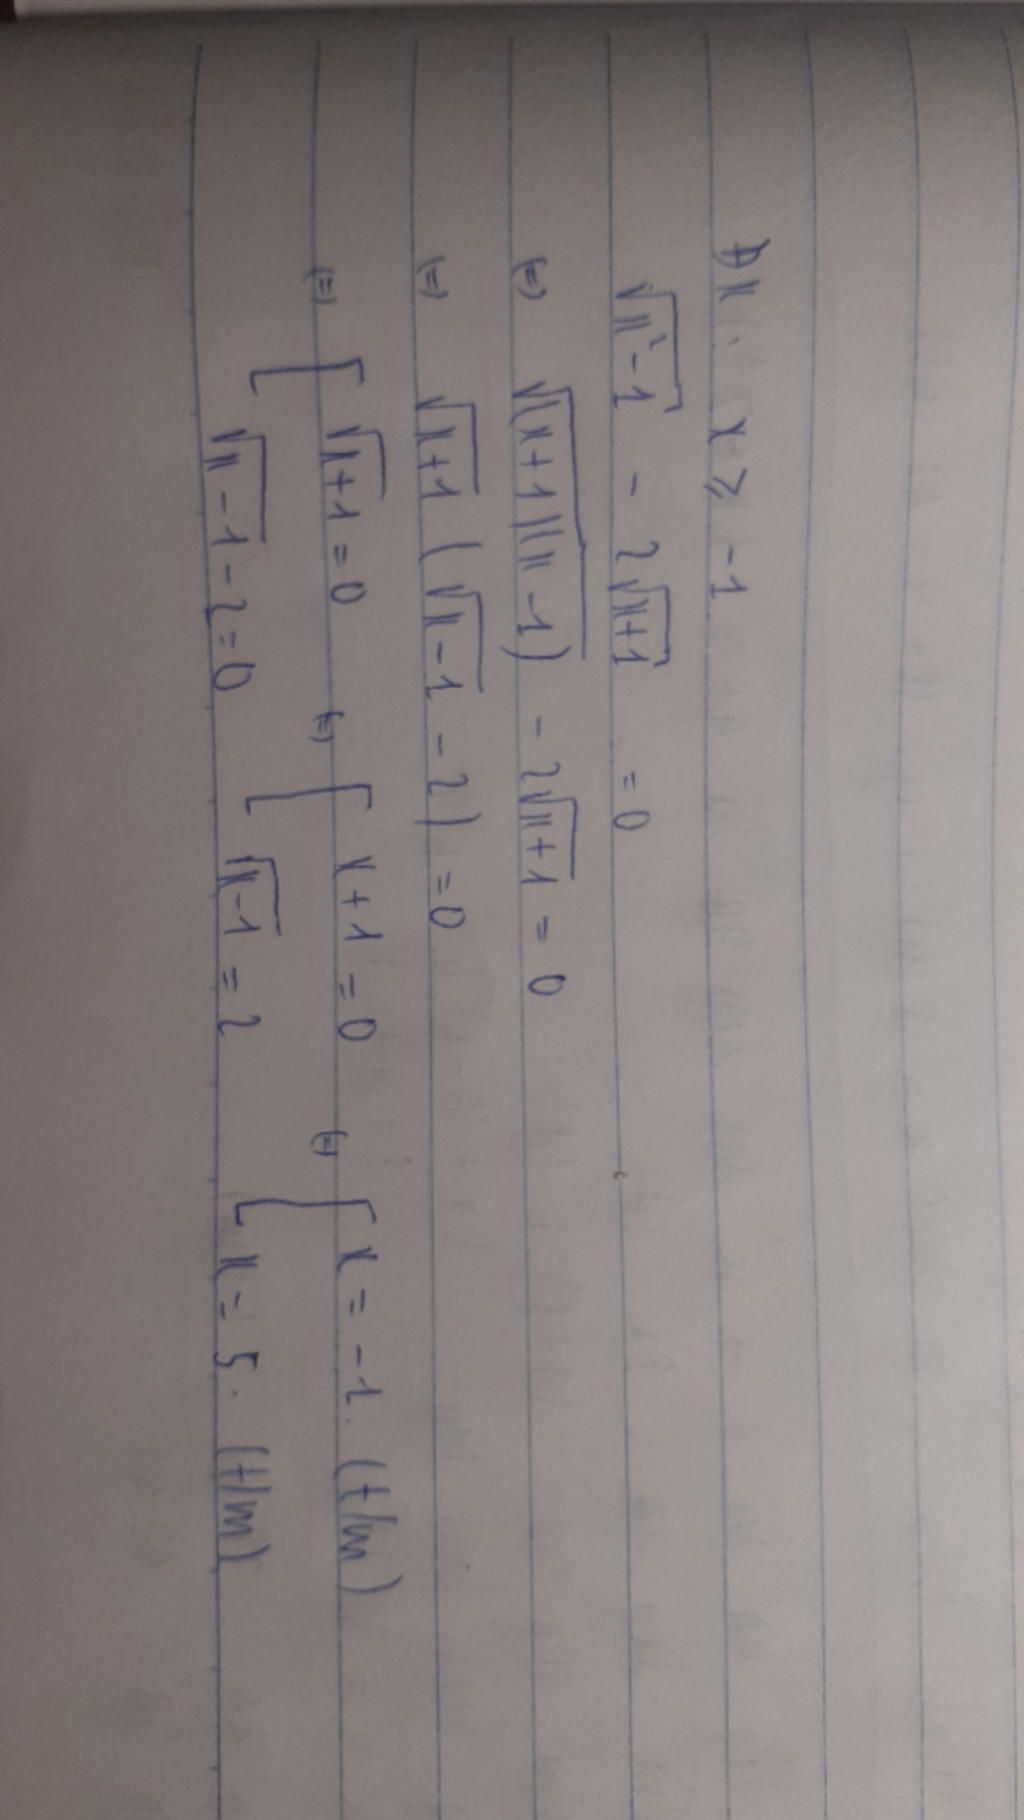 Đk: x ≥ -1
√(x²-1) - 2√(x+1) = 0
(=) √((x+1)(x-1)) - 2√(x+1) = 0
(=) √(x+1) (√(x-1) - 2) = 0
(=) [ √(x+1) = 0 (=) [ x+1 = 0 (=) [ x = -1. (t/m)
√(x-1) - 2 = 0 √(x-1) = 2 x = 5. (t/m)